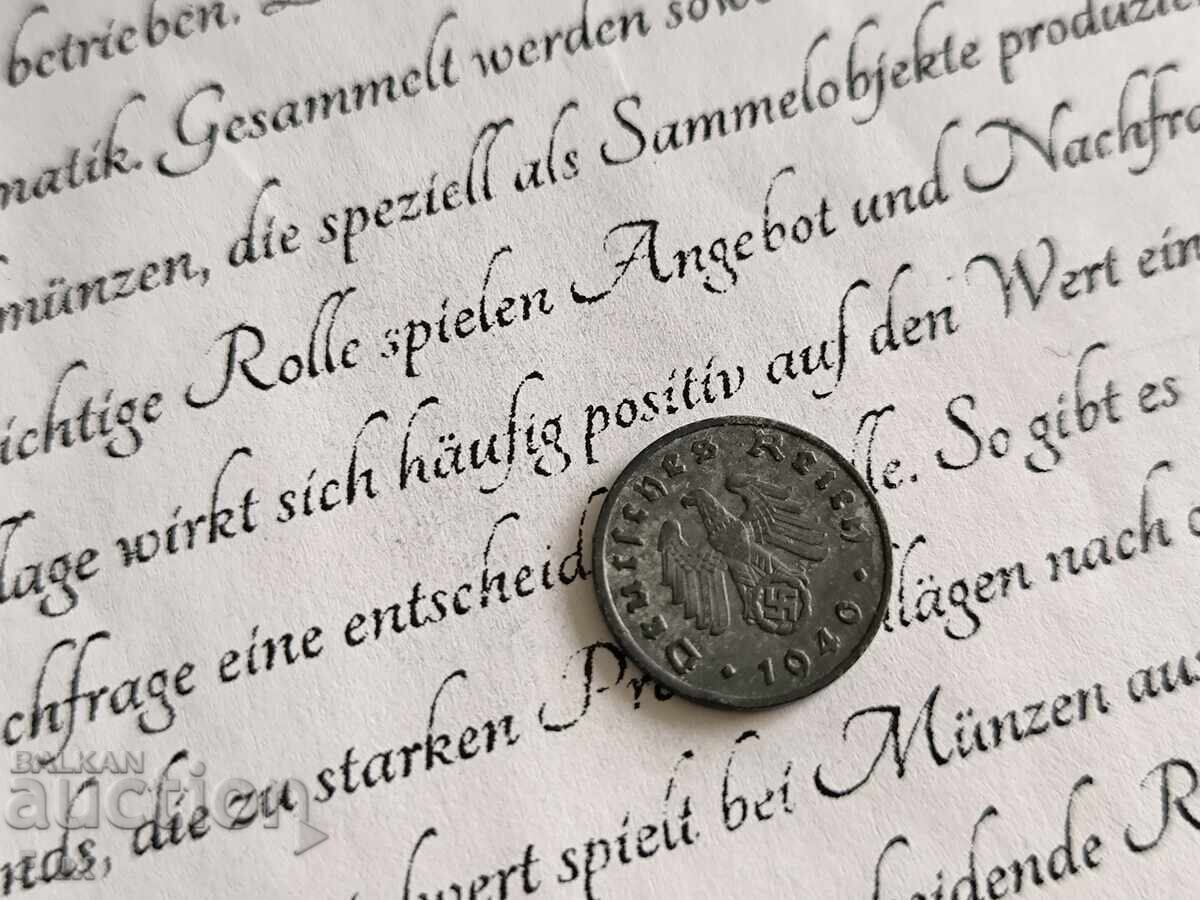 betrieben.
matik. Gesammelt werden sowe
münzen, die speziell als Sammelobjekte produzie
ichtige Rolle spielen Angebot und Nachfra
lage wirkt sich häufig positiv auf den Wert ein
chfrage eine entscheid lle. So gibt es
nds, die zu starken Pre lägen nach o
wert spielt bei Münzen aus
eidende R
Deutsches Reich
1940
BALKAN
auction